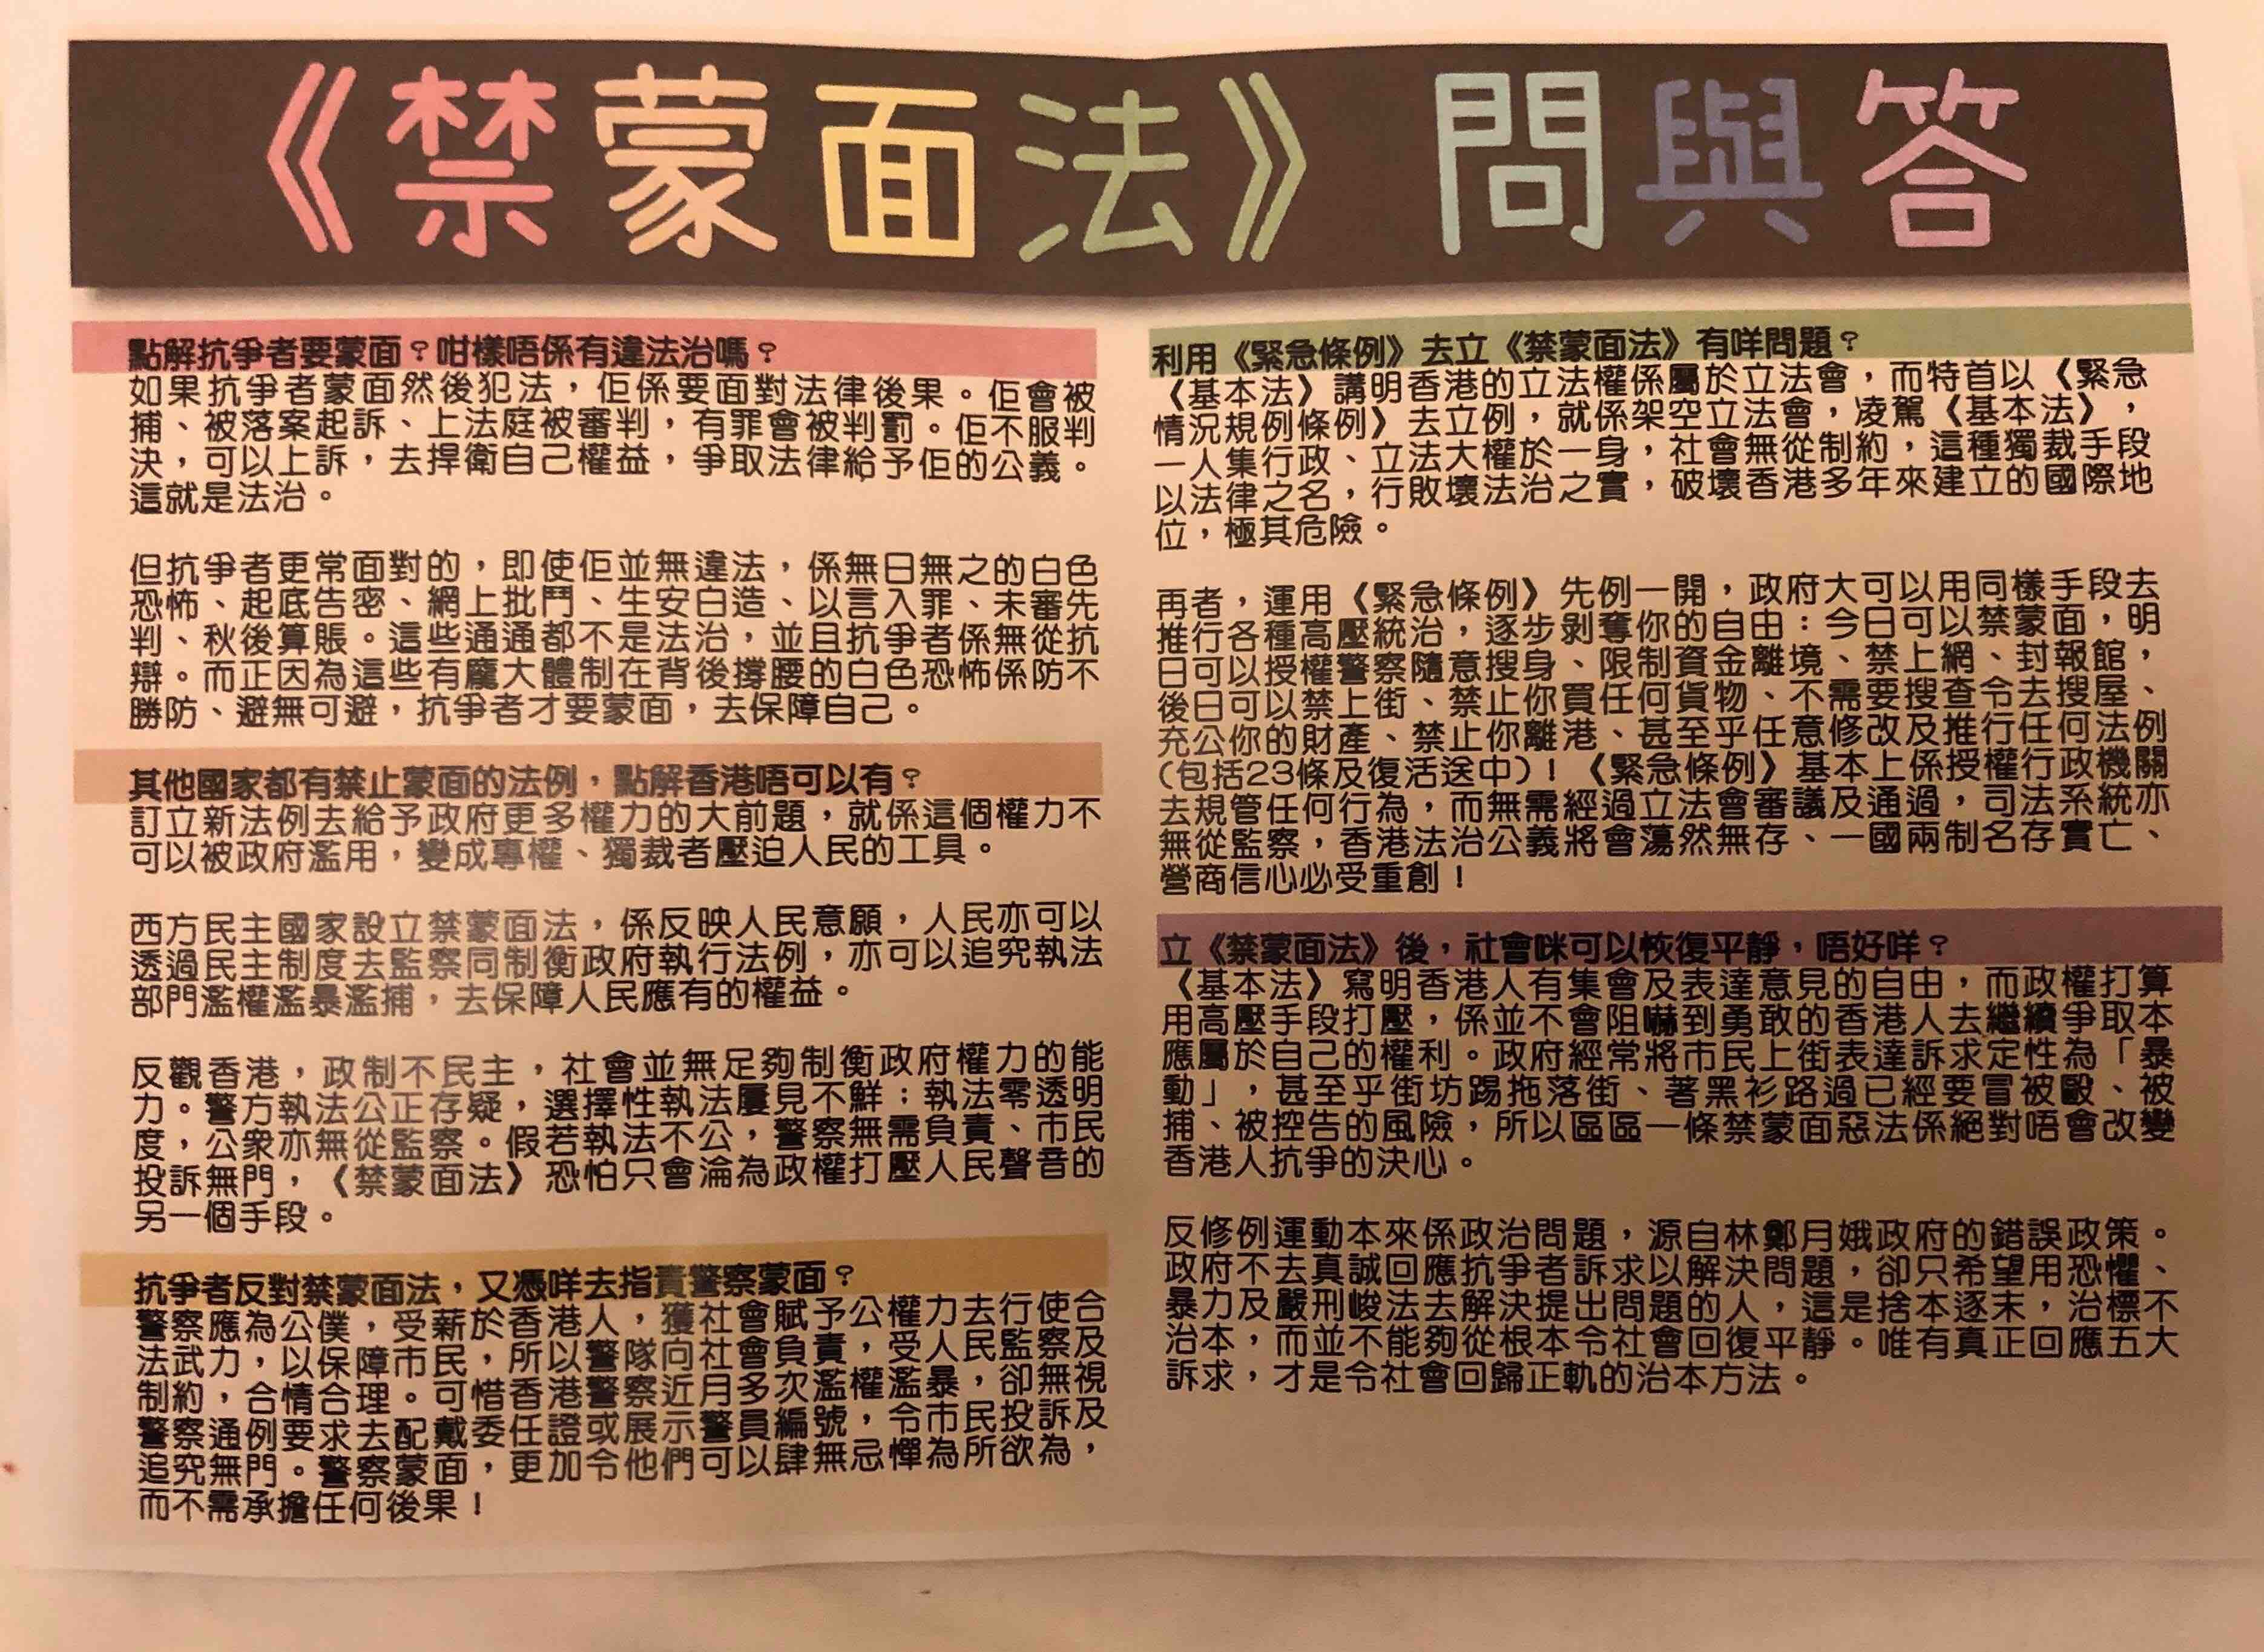 《禁蒙面法》問與答
點解抗爭者要蒙面？咁樣唔係有違法治嗎？
如果抗爭者蒙面然後犯法，佢係要面對法律後果。佢會被
捕、被落案起訴、上法庭被審判，有罪會被判罰。佢不服判
決，可以上訴，去捍衛自己權益，爭取法律給予佢的公義。
這就是法治。
但抗爭者更常面對的，即使佢並無違法，係無日無之的白色
恐怖、起底告密、網上批鬥、生安白造、以言入罪、未審先
判、秋後算賬。這些通通都不是法治，並且抗爭者係無從抗
辯。而正因為這些有龐大體制在背後撐腰的白色恐怖係防不
勝防、避無可避，抗爭者才要蒙面，去保障自己。
其他國家都有禁止蒙面的法例，點解香港唔可以有？
訂立新法例去給予政府更多權力的大前題，就係這個權力不
可以被政府濫用，變成專權、獨裁者壓迫人民的工具。
西方民主國家設立禁蒙面法，係反映人民意願，人民亦可以
透過民主制度去監察同制衡政府執行法例，亦可以追究執法
部門濫權濫暴濫捕，去保障人民應有的權益。
反觀香港，政制不民主，社會並無足夠制衡政府權力的能
力。警方執法公正存疑，選擇性執法屢見不鮮；執法零透明
度，公眾亦無從監察。假若執法不公，警察無需負責、市民
投訴無門，《禁蒙面法》恐怕只會淪為政權打壓人民聲音的
另一個手段。
抗爭者反對禁蒙面法，又憑咩去指責警察蒙面？
警察應為公僕，受薪於香港人，獲社會賦予公權力去行使合
法武力，以保障市民，所以警隊向社會負責，受人民監察及
制約，合情合理。可惜香港警察近月多次濫權濫暴，卻無視
警察通例要求去配戴委任證或展示警員編號，令市民投訴及
追究無門。警察蒙面，更加令他們可以肆無忌憚為所欲為，
而不需承擔任何後果！
利用《緊急條例》去立《禁蒙面法》有咩問題？
《基本法》講明香港的立法權係屬於立法會，而特首以《緊急
情況規例條例》去立例，就係架空立法會，凌駕《基本法》，
一人集行政、立法大權於一身，社會無從制約，這種獨裁手段
以法律之名，行敗壞法治之實，破壞香港多年來建立的國際地
位，極其危險。
再者，運用《緊急條例》先例一開，政府大可以用同樣手段去
推行各種高壓統治，逐步剝奪你的自由：今日可以禁蒙面，明
日可以授權警察隨意搜身、限制資金離境、禁上網、封報館，
後日可以禁上街、禁止你買任何貨物、不需要搜查令去搜屋、
充公你的財產、禁止你離港、甚至乎任意修改及推行任何法例
(包括23條及復活送中)！《緊急條例》基本上係授權行政機關
去規管任何行為，而無需經過立法會審議及通過，司法系統亦
無從監察，香港法治公義將會蕩然無存、一國兩制名存實亡、
營商信心必受重創！
立《禁蒙面法》後，社會咪可以恢復平靜，唔好咩？
《基本法》寫明香港人有集會及表達意見的自由，而政權打算
用高壓手段打壓，係並不會阻嚇到勇敢的香港人去繼續爭取本
應屬於自己的權利。政府經常將市民上街表達訴求定性為「暴
動」，甚至乎街坊踢拖落街、著黑衫路過已經要冒被毆、被
捕、被控告的風險，所以區區一條禁蒙面惡法係絕對唔會改變
香港人抗爭的決心。
反修例運動本來係政治問題，源自林鄭月娥政府的錯誤政策。
政府不去真誠回應抗爭者訴求以解決問題，卻只希望用恐懼、
暴力及嚴刑峻法去解決提出問題的人，這是捨本逐末，治標不
治本，而並不能夠從根本令社會回復平靜。唯有真正回應五大
訴求，才是令社會回歸正軌的治本方法。